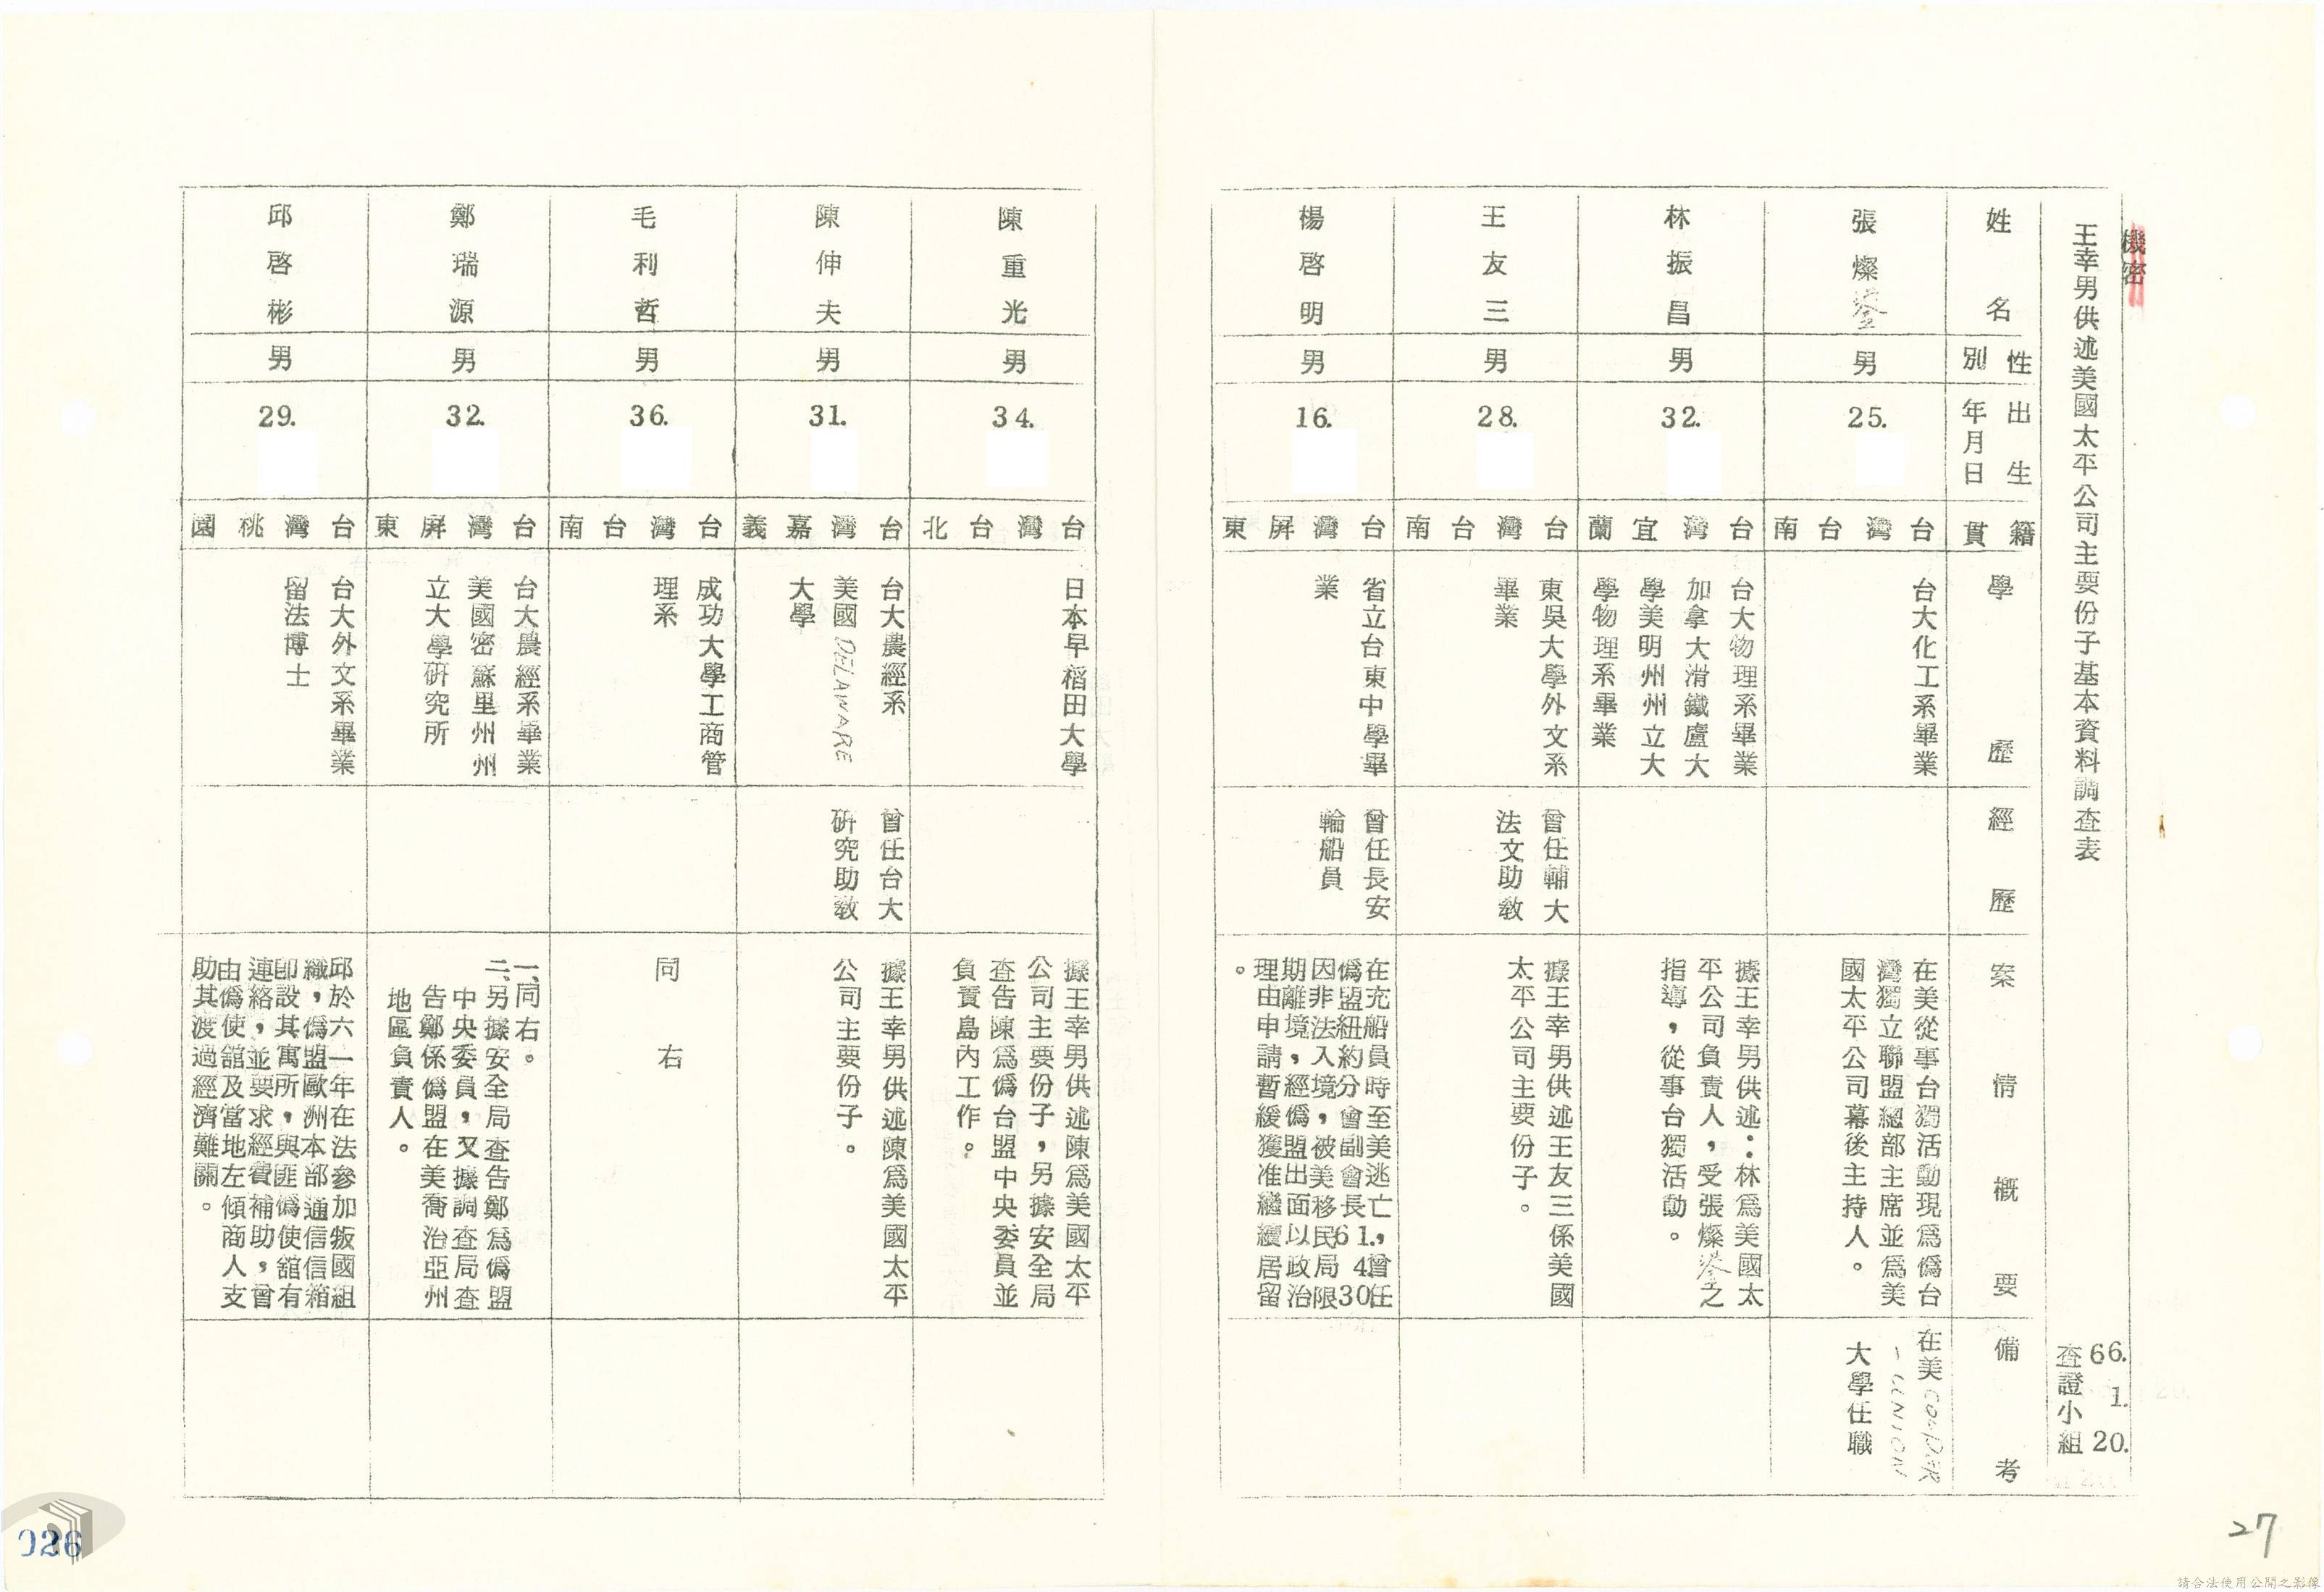 機密
王幸男供述美國太平公司主要份子基本資料調查表
66. 1. 20.
查證小組
姓名
性別
出生年月日
籍貫
學歷
經歷
案情概要
備考
張燦鍙
男
25.
台灣台南
台大化工系畢業
在美從事台獨活動現為偽台
灣獨立聯盟總部主席並為美
國太平公司幕後主持人。
在美
UNION
大學任職
林振昌
男
32.
台灣宜蘭
台大物理系畢業
加拿大滑鐵盧大
學美明州州立大
學物理系畢業
據王幸男供述：林為美國太
平公司負責人，受張燦鍙之
指導，從事台獨活動。
王友三
男
28.
台灣台南
東吳大學外文系
畢業
曾任輔大
法文助教
據王幸男供述王友三係美國
太平公司主要份子。
楊啓明
男
16.
台灣屏東
省立台東中學畢
業
曾任長安
輪船員
在充船員時至美逃亡，曾任
偽盟紐約分會副會長61. 4.30
因非法入境，被美移民局限
期離境，經偽盟出面以政治
理由申請暫緩獲准繼續居留
。
陳重光
男
34.
台灣台北
日本早稻田大學
據王幸男供述陳為美國太平
公司主要份子，另據安全局
查告陳為偽台盟中央委員並
負責島內工作。
陳伸夫
男
31.
台灣嘉義
台大農經系
美國DELAWARE
大學
曾任台大
研究助教
據王幸男供述陳為美國太平
公司主要份子。
毛利哲
男
36.
台灣台南
成功大學工商管
理系
同右
鄭瑞源
男
32.
台灣屏東
台大農經系畢業
美國密蘇里州州
立大學研究所
一、同右。
二、另據安全局查告鄭為偽盟
中央委員，又據調查局查
告鄭係偽盟在美喬治亞州
地區負責人。
邱啓彬
男
29.
台灣桃園
台大外文系畢業
留法博士
邱於六一年在法參加叛國組
織，偽盟歐洲本部通信信箱
即設其寓所，與匪偽使舘有
連絡，並要求經費補助，曾
由偽使舘及當地左傾商人支
助其渡過經濟難關。
026
27
請合法使用公開之影像